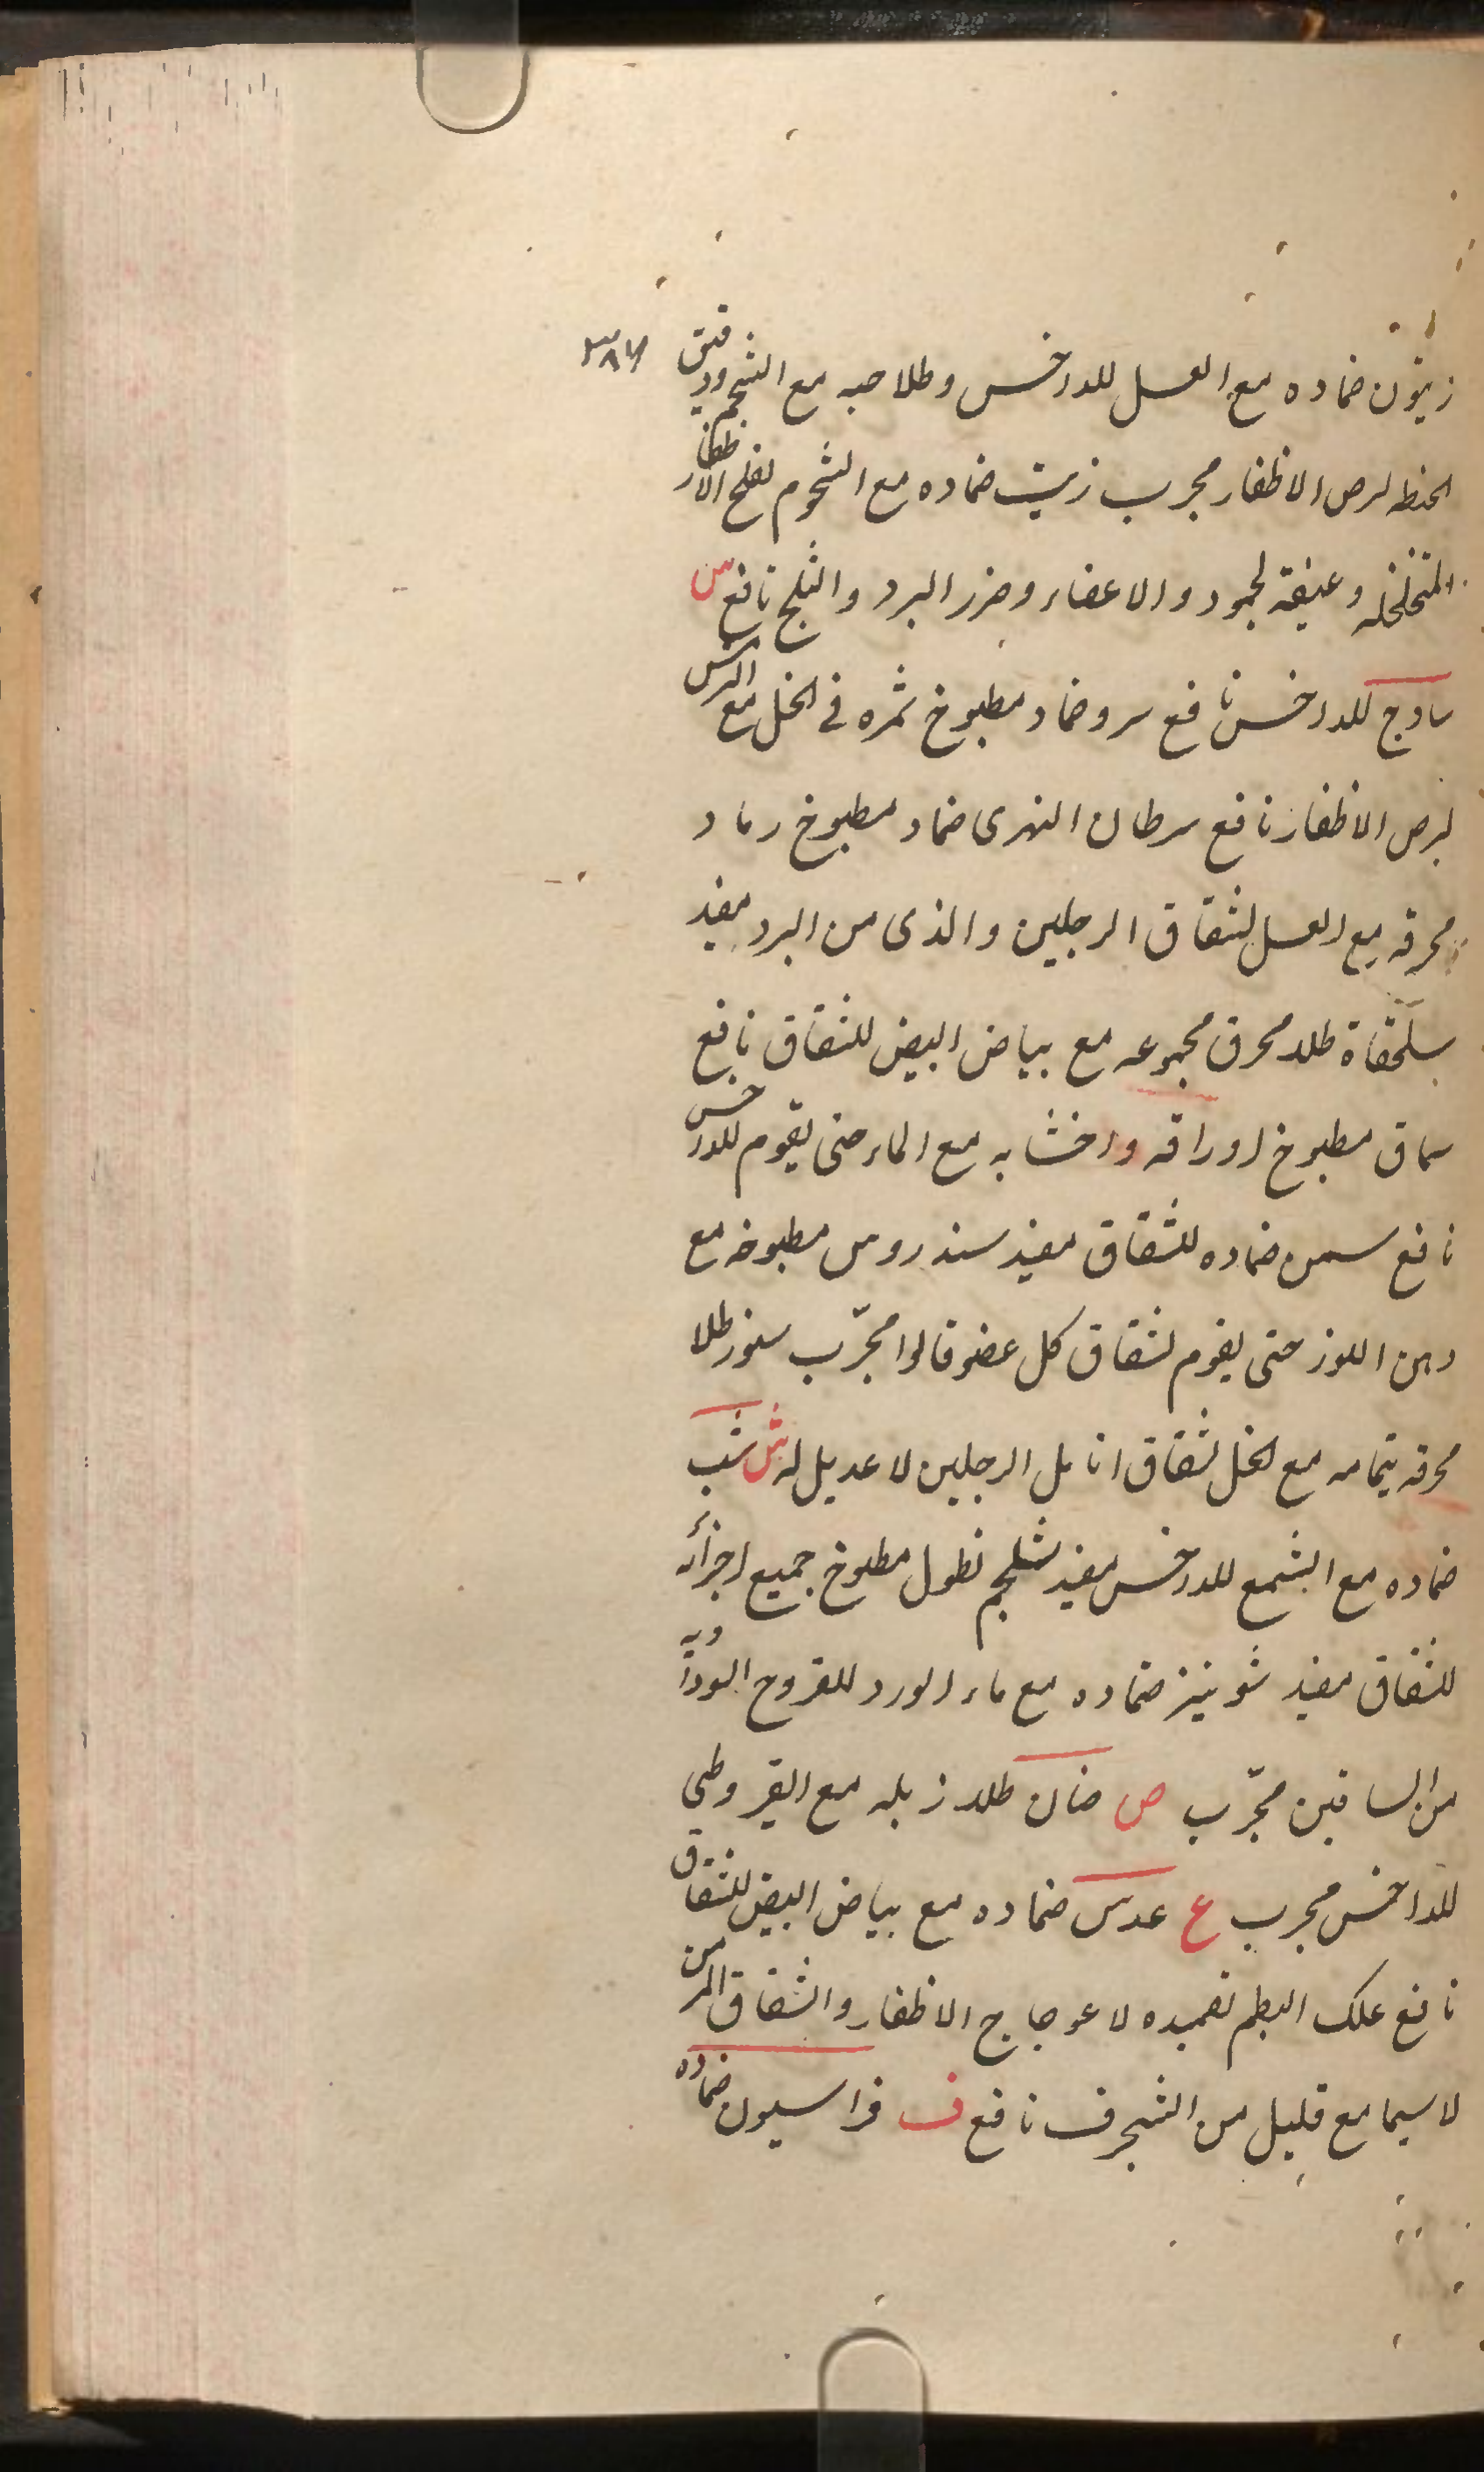 ٣٨٦
زيتون ضماده مع العسل للداخس وطلا حبه مع الشحم ودقيق
الحنطه لبرص الاظفار مجرب زيت ضماده مع الشحوم لقلع الاظفار
المتخلخله وعتيقه لجمود والاعضاء وضرر البرد والثلج نافع س
سادج للداخس نافع سرو ضماد مطبوخ ثمره فى الخل مع الترمس
لبرص الاظفار نافع سرطان النهرى ضماد مطبوخ رماد
محرقه مع العسل لشقاق الرجلين والذى من البرد مفيد
سلحفاة طلاء محرق مجموعه مع بياض البيض للشقاق نافع
سماق مطبوخ اوراقه واخشابه مع الماء حتى يقوم للداخس
نافع سمن ضماده للشقاق مفيد سندروس مطبوخه مع
دهن اللوز حتى يقوم لشقاق كل عضو قالوا مجرّب سنور طلا
محرقه بتمامه مع الخل لشقاق انامل الرجلين لا عديل له ش شب
ضماده مع الشمع للداخس مفيد شلجم نطول مطبوخ جميع اجزائه
للشقاق مفيد شونيز ضماده مع ماء الورد للقروح السوداويه
من الساقين مجرّب ص ضان طلاء زبله مع القيروطى
للداخس مجرب ع عدس ضماده مع بياض البيض للشقاق
نافع علك البطم تضميده لاعوجاج الاظفار والشقاق المزمن
لا سيما مع قليل من الشنجرف نافع ف فراسيون ضماده